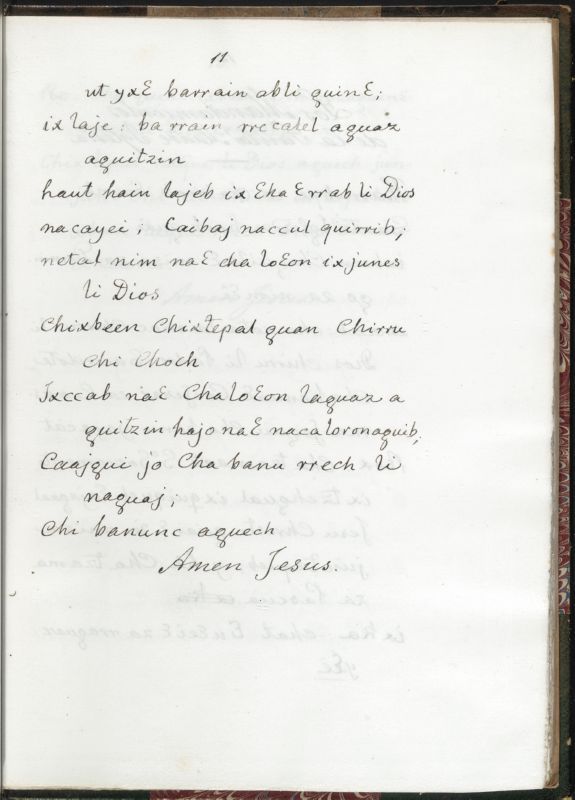 11
ut yxƐ barrain abli quinƐ;
ix laje: ba rrain rrecalel aquaz
aquitzin
haut hain lajeb ix Ɛka Ɛrrab li Dios
nacayei; Caibaj naccul quirrib;
netal nim naƐ cha loƐon ix junes
li Dios
Chixbeen Chixtepal quan Chirru
chi Choch
Ixccab naƐ Cha loƐon laquaz a
quitzin hajo naƐ nacaloronaquib;
Caajqui jo Cha banu rrech li
naquaj;
Chi banunc aquech
Amen Jesus.